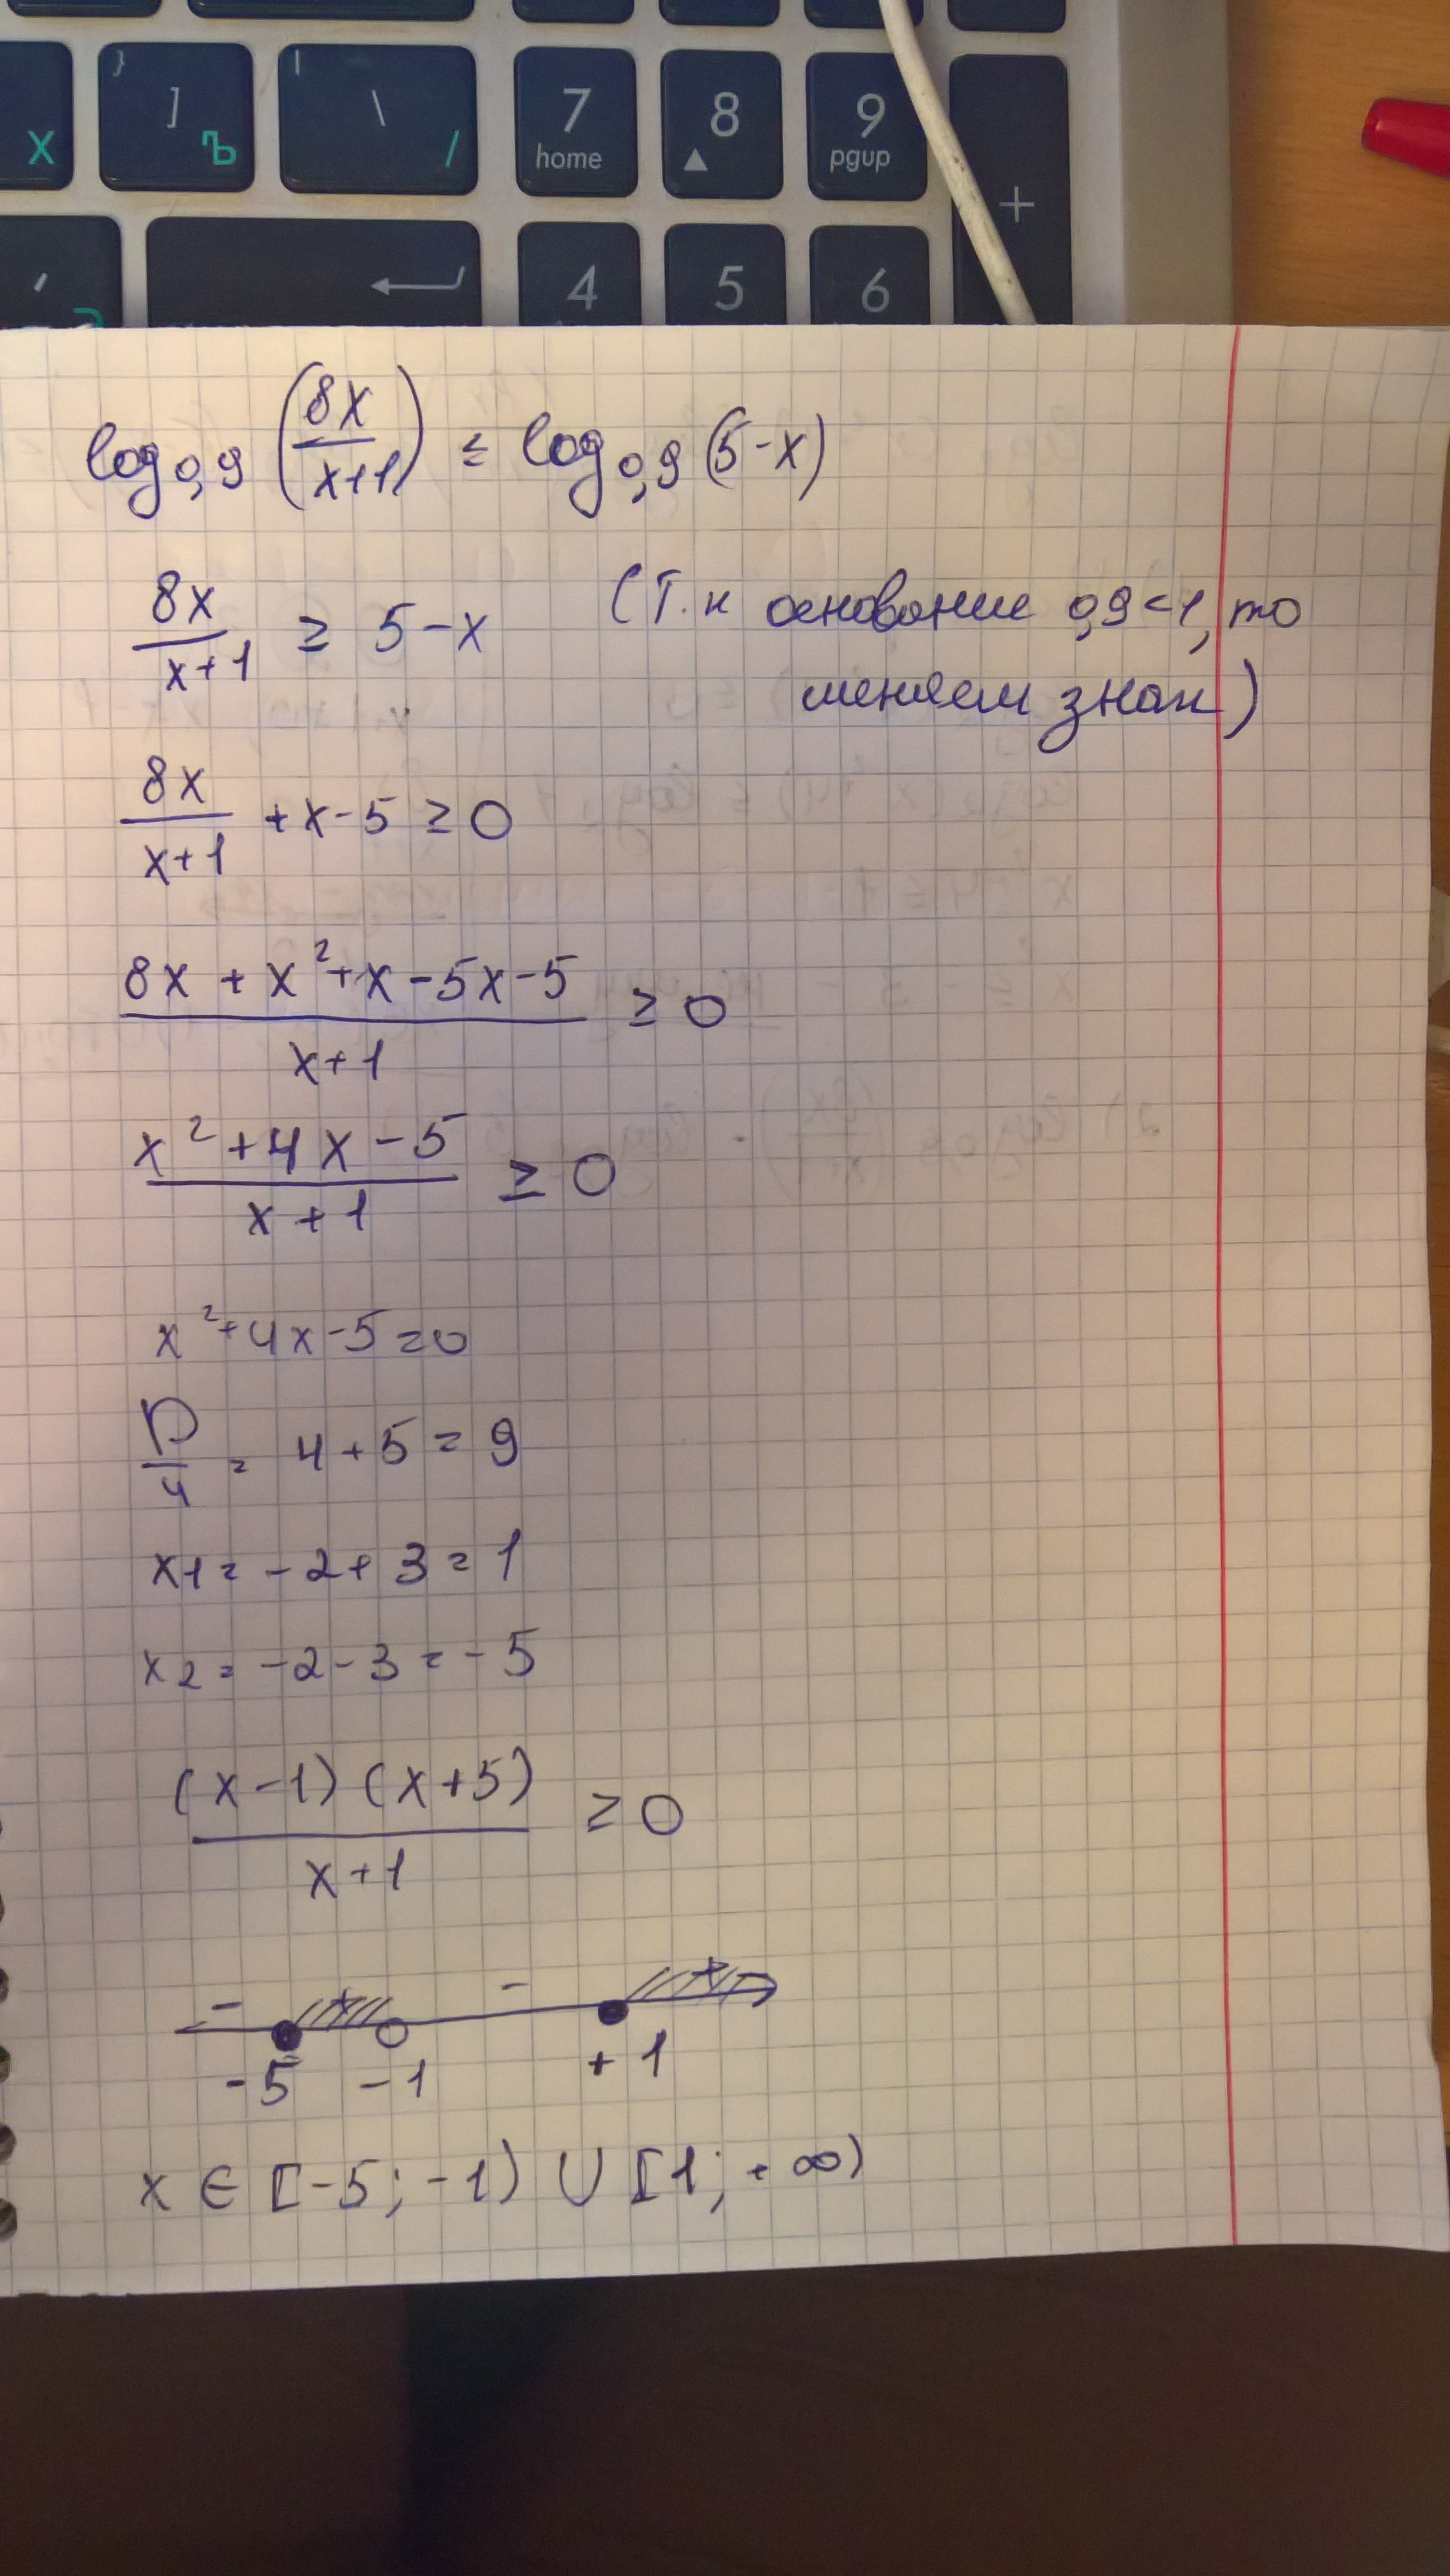 } ] Ъ
| \ /
Х
7 home
8
9 pgup
+
Э
4
5
6
log₀,₉ (8x/(x+1)) ≤ log₀,₉ (5-x)
8x/(x+1) ≥ 5-x (Т.к основание 0,9<1, то
меняем знак)
8x/(x+1) +x-5 ≥ 0
(8x + x²+x-5x-5)/(x+1) ≥ 0
(x²+4x-5)/(x+1) ≥ 0
x²+4x-5=0
D/4 = 4+5=9
x1=-2+3=1
x2=-2-3=-5
((x-1)(x+5))/(x+1) ≥ 0
- + - +
-5 -1 +1
x ∈ [-5; -1) ∪ [1; +∞)